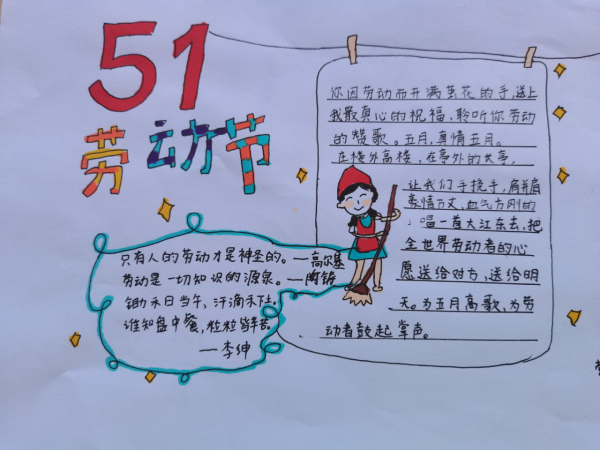 51
劳动节
你因劳动而开满茧花的手,送上
我最真心的祝福,聆听你劳动
的赞歌。五月,真情五月。
在楼外高楼,在亭外的长亭,
让我们手挽手,肩并肩
豪情万丈,血气方刚的
唱一首大江东去,把
全世界劳动者的心
愿送给对方,送给明
天。为五月高歌,为劳
动者鼓起掌声。
只有人的劳动才是神圣的。—高尔基
劳动是一切知识的源泉。—陶铸
锄禾日当午,汗滴禾下土。
谁知盘中餐,粒粒皆辛苦。
—李绅